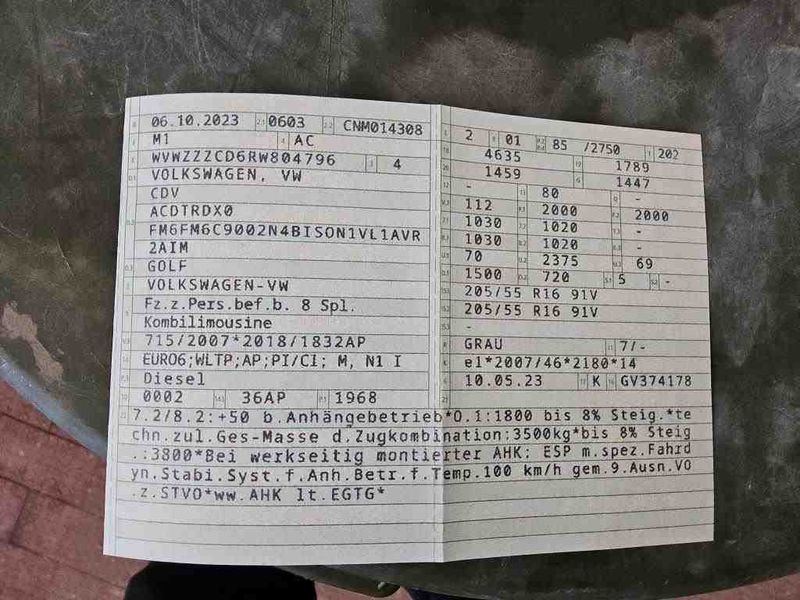 06.10.2023 0603 CNM014308
M1 AC
WVWZZZCD6RW804796 4
VOLKSWAGEN, VW
CDV
ACDTRDX0
FM6FM6C9002N4BISON1VL1AVR
2AIM
GOLF
VOLKSWAGEN-VW
Fz.z.Pers.bef.b. 8 Spl.
Kombilimousine
715/2007*2018/1832AP
EURO6;WLTP;AP;PI/CI; M, N1 I
Diesel
0002 36AP 1968
2 01 85 /2750 202
4635 1789
1459 1447
- 80 -
112 2000 2000
1030 1020 -
1030 1020 -
70 2375 69
1500 720 5 -
205/55 R16 91V
205/55 R16 91V
-
GRAU 7/-
e1*2007/46*2180*14
10.05.23 K GV374178
7.2/8.2:+50 b.Anhängebetrieb*O.1:1800 bis 8% Steig.*te
chn.zul.Ges-Masse d.Zugkombination:3500kg*bis 8% Steig
.:3800*Bei werkseitig montierter AHK: ESP m.spez.Fahrd
yn.Stabi.Syst.f.Anh.Betr.f.Temp.100 km/h gem.9.Ausn.VO
.z.STVO*ww.AHK lt.EGTG*